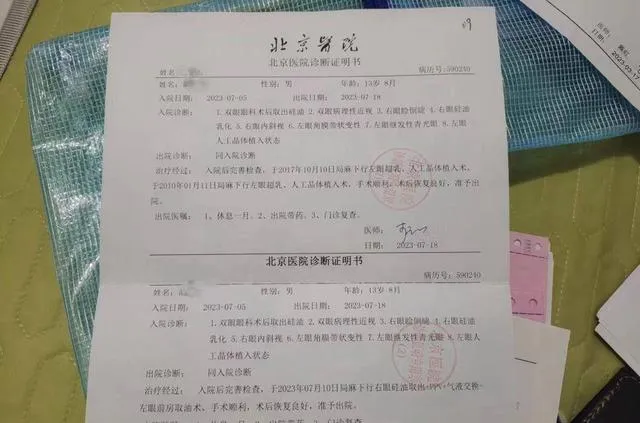 09
北京醫院
北京医院诊断证明书
病历号：590240
姓名 性别：男 年龄：13岁 8月
入院日期：2023-07-05 出院日期：2023-07-18
入院诊断：1.双眼眼科术后取出硅油 2.双眼病理性近视 3.右眼睑倒睫 4.右眼硅油
乳化 5.右眼内斜视 6.左眼角膜带状变性 7.左眼继发性青光眼 8.左眼
人工晶体植入状态
出院诊断：同入院诊断
治疗经过：入院后完善检查，于2017年10月10日局麻下行左眼超乳，人工晶体植入术，
于2010年01月11日局麻下行左眼超乳、人工晶体植入术，手术顺利，术后恢复良好，准予出
院。
出院医嘱：1、休息一月。2、出院带药。3、门诊复查。
医师：
日期：2023-07-18
北京医院诊断证明书
病历号：590240
姓名 性别：男 年龄：13岁 8月
入院日期：2023-07-05 出院日期：2023-07-18
入院诊断：1.双眼眼科术后取出硅油 2.双眼病理性近视 3.右眼睑倒睫 4.右眼硅油
乳化 5.右眼内斜视 6.左眼角膜带状变性 7.左眼继发性青光眼 8.左眼人
工晶体植入状态
出院诊断：同入院诊断
治疗经过：入院后完善检查，于2023年07月10日局麻下行右眼硅油取出 气液交换-
左眼前房取油术，手术顺利，术后恢复良好，准予出院。